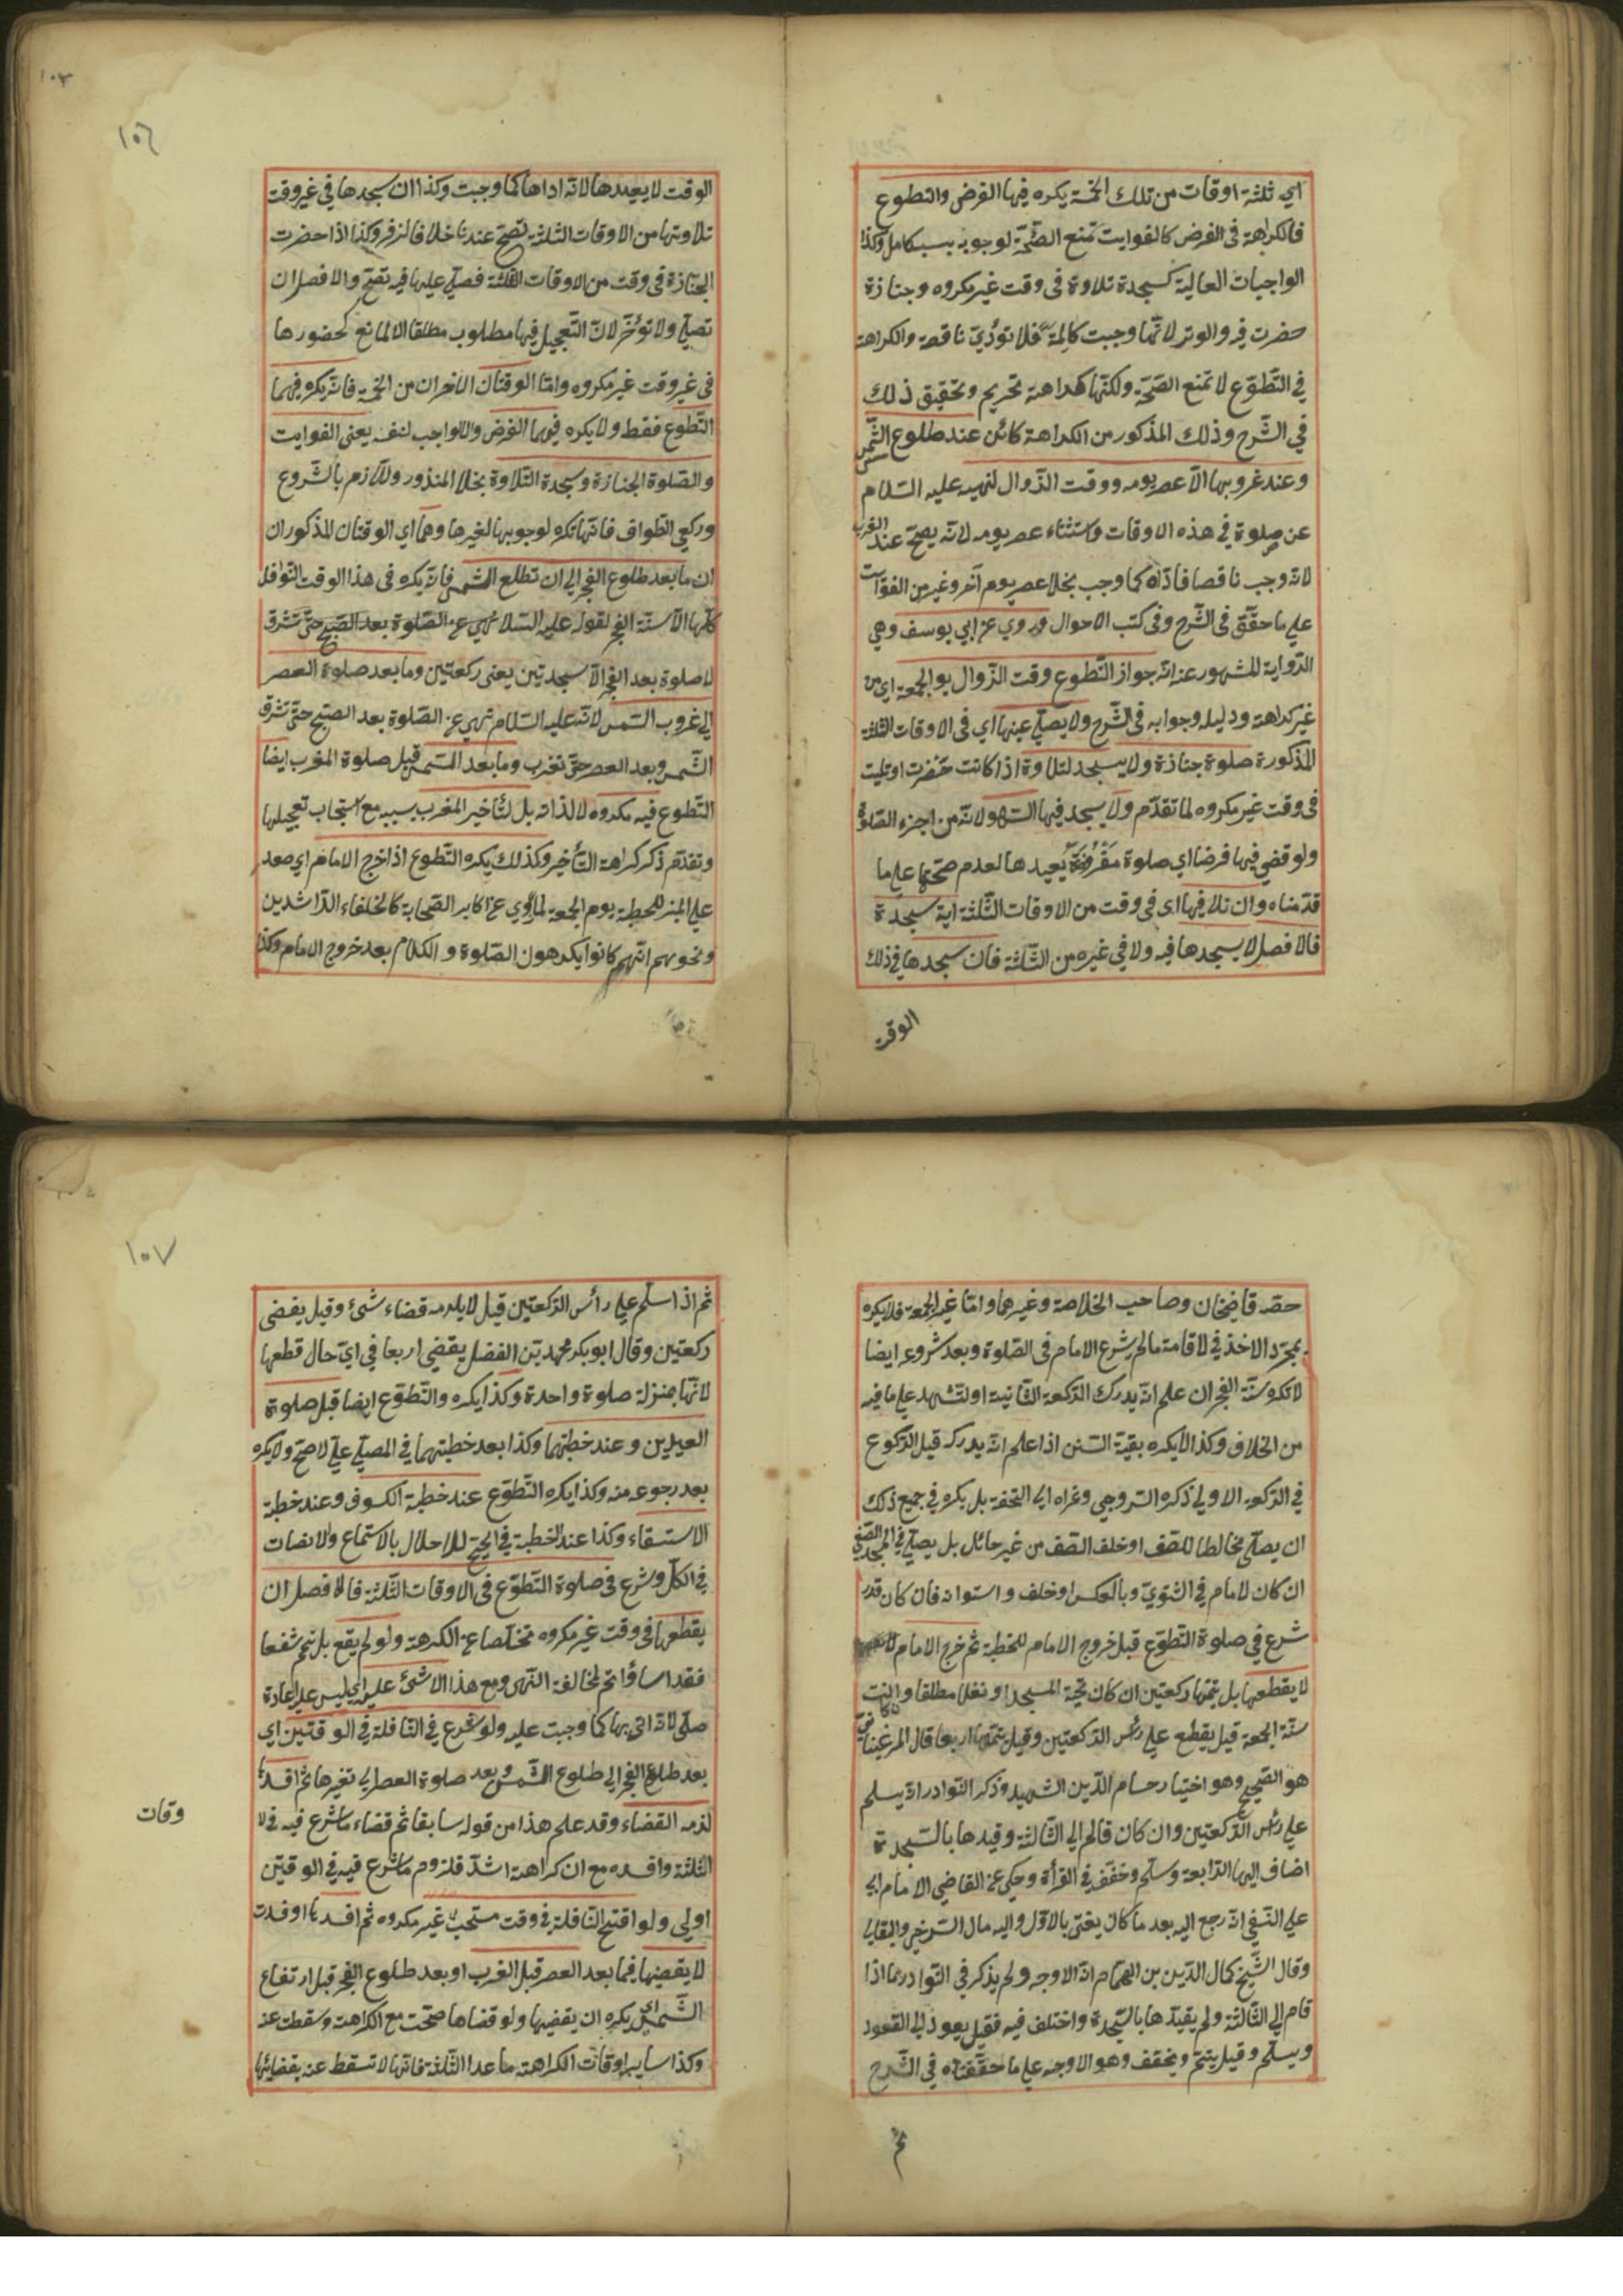 اي ثلثة اوقات من تلك الخمسة يكره فيها الفرض والتطوع
فالكراهة فى الفرض كالفوايت تمنع الصحّة لوجوبه بسبب كامل وكذا
الواجبات العالية كسجدة تلاوة فى وقت غير مكروه وجنازة
حضرت فيه والوتر لانّها وجبت كاملة فلا تؤدّي ناقصة والكراهة
في التّطوّع لا تمنع الصّحّة ولكنّها كراهة تحريم وتحقيق ذلك
في الشّرح وذلك المذكور من الكراهة كائن عند طلوع الشّمس
وعند غروبها الّا عصر يومه ووقت الزّوال لنهيه عليه السّلام
عن صلوة في هذه الاوقات واستثناء عصر يومه لانّه يصحّ عند الغروب
لانّه وجب ناقصا فادّاه كما وجب بخلا عصر يوم آخر وغيره من الفوايت
علي ما حقّق فى الشّرح وفى كتب الاحوال وروي عن ابي يوسف وهي
الرّواية المشهور عنه انّه جواز التّطوع وقت الزّوال يوالجمعة اي من
غير كراهة ودليله وجوابه في الشّرح ولا يصلّي عينها اي فى الاوقات الثلثة
المذكورة صلوة جنازة ولا يسجد لتلاوة اذا كانت حضرت او تليت
فى وقت غير مكروه لما تقدّم ولا يسجد فيها السّهو لانّه من اجزء الصّلوة
ولو قضي فيها فرضا اي صلوة مفروضة يعيدها لعدم صحّتها علي ما
قدّمناه وان تلا فيها اى فى وقت من الاوقات الثّلثة اية سجدة
فالافضل لا يسجدها فيه ولا في غيره من الثّلثة فان سجدها في ذلك
الوقت
١٠٦
الوقت لا يعيدها لانّه اداها كما وجبت وكذا ان سجدها في غير وقت
تلاوتها من الاوقات الثلثة تصحّ عندنا خلافا لزفر وكذا اذا حضرت
الجنازة فى وقت من الاوقات الثلثة فصلّي عليها فيه تصحّ والافضل ان
تصلّي ولا تؤخّر لانّ التّعجيل فيها مطلوب مطلقا الا لمانع كحضورها
فى غير وقت غير مكروه وامّا الوقتان الاخران من الخمسة فانّه يكره فيهما
التّطوع فقط ولا يكره فيهما الفرض والا واجب لنفسه يعنى الفوايت
والصّلوة الجنازة وسجدة التّلاوة بخلا المنذور واللّازم بالشّروع
وركعي الطّواف فانّها تكره لوجوبها لغيرها وهما اي الوقتان المذكوران
ان ما بعد طلوع الفجر الي ان تطلع الشمس فانّه يكره فى هذا الوقت النّوافل
كلّها الّا سنّة الفجر لقوله عليه السّلا نهي عن الصّلوة بعد الصّبح حتّى تشرق
لا صلوة بعد الفجر الّا سجدتين يعنى ركعتين وما بعد صلوة العصر
الي غروب الشمس لانّه عليه السّلام نهي عن الصّلوة بعد الصّبح حتّى تشرق
الشّمس وبعد العصر حتّى تغرب وما بعد الشّمس قبل صلوة المغرب ايضا
التّطوع فيه مكروه لا لذاته بل لتأخير المغرب بسببه مع استحباب تعجيلها
وتقدّم ذكر كراهة التّأخير وكذلك يكره التّطوع اذا خرج الامام اي صعد
علي المنبر للخطبة يوم الجمعة لما روي عن اكابر الصّحابة كالخلفاء الرّاشدين
ونحوهم انّهم كانوا يكرهون الصّلوة والكلام بعد خروج الامام وكذا
حضر قاضيخان وصاحب الخلاصة وغيرهما وامّا غير الجمعة فلا يكره
بمجرّد الاخذ في لاقامة ما لم يشرع الامام فى الصّلوة وبعد شروعه ايضا
لا تكره سنّة الفجر ان علم انّه يدرك الرّكعة الثّانية او التّشهد علي ما فيه
من الخلاف وكذا لا يكره بقيّة السّنن اذا علم انّه يدركه قبل الرّكوع
في الرّكعه الاولي ذكره السّروجي وعزاه الي التّحفة بل يكره في جميع ذلك
ان يصلّي مخالطا للصّف او خلف الصّف من غير حائل بل يصلّي في المسجد الصّيفي
ان كان لامام في الشّتويّ وبالعكس او خلف واستوانه فان كان قدر
شرع في صلوة التّطوّع قبل خروج الامام للخطبة ثم خرج الامام
لا يقطعها بل يتمّها ركعتين ان كان تحيّة المسجد او نفلا مطلقا وان كانت
سنّة الجمعة قيل يقطع علي رأس الرّكعتين وقيل يتمّها اربعا قال المرغيناني
هو الصّحيح وهو اختيار حسام الدّين الشّهيد وذكر النّوادر انّه يسلم
علي رأس الرّكعتين وان كان قالم الي الثّالثة وقيدها بالسّجدة
اضاف اليها الرّابعة وسلّم وخفّف في القرأة وحكي عن القاضي الامام ابي
علي النّسفي انّه رجع اليه بعد ما كان يفتى بالاوّل واليه مال السّرخسي والبقالي
وقال الشّيخ كمال الدّين بن الهمّام انّه الاوجه ولم يذكر في النّوادر عمّا اذا
قام الي الثّالثة ولم يقيّدها بالسّجدة واختلف فيه فقيل يعود الي القعود
ويسلّم وقيل يتمّ ويخفف وهو الاوجه علي ما حقّقناه في الشّرح
ثم
١٠٧
ثم اذا سلّم علي رأس الرّكعتين قيل لا يلزمه قضاء شئ وقيل يقضى
ركعتين وقال ابو بكر محمد بن الفضل يقضي اربعا في ايّ حال قطعها
لانّها بمنزلة صلوة واحدة وكذا يكره والتّطوّع ايضا قبل صلوة
العيدين وعند خطبتهما وكذا بعد خطبتهما في المصلّي علي لاصحّ ولا يكره
بعد رجوعه منه وكذا يكره التّطوّع عند خطبة الكسوف وعند خطبة
الاستسقاء وكذا عند الخطبة في الحجّ للاحلال بالاستماع ولانصات
في الكلّ وشرع فى صلوة التّطوّع فى الاوقات الثّلثة فالافضل ان
يقطعها فى وقت غير مكروه تخلّصا عن الكرهة ولو لم يقع بل تمّم شفعا
فقد اساؤا ثم لمخالفة النّهى ومع هذا لا شئ عليه اي ليس عليه اعادة
صلّي لانّه اتى بها كما وجبت عليه ولو شرع في النّافلة في الوقتين اي
بعد طلوع الفجر الي طلوع الشّمس وبعد صلوة العصر الي تغيرها ثم افسدها
لزمه القضاء وقد علم هذا من قوله سابقا ثم قضاء ما شرع فيه في لا
وقات
الثّلثة وافسده مع ان كراهته اشدّ فلزوم ما شرع فيه في الوقتين
اولي ولو افتتح النّافلة في وقت مستحبّ غير مكروه ثم افسدها او فسدت
لا يقضيها فيما بعد العصر قبل الغرب او بعد طلوع الفجر قبل ارتفاع
الشّمس اي يكره ان يقضيها ولو قضاها صحّت مع الكراهة وسقطت عنه
وكذا ساير اوقات الكراهة ما عدا الثّلثة فانّها لا تسقط عنه بقضائها